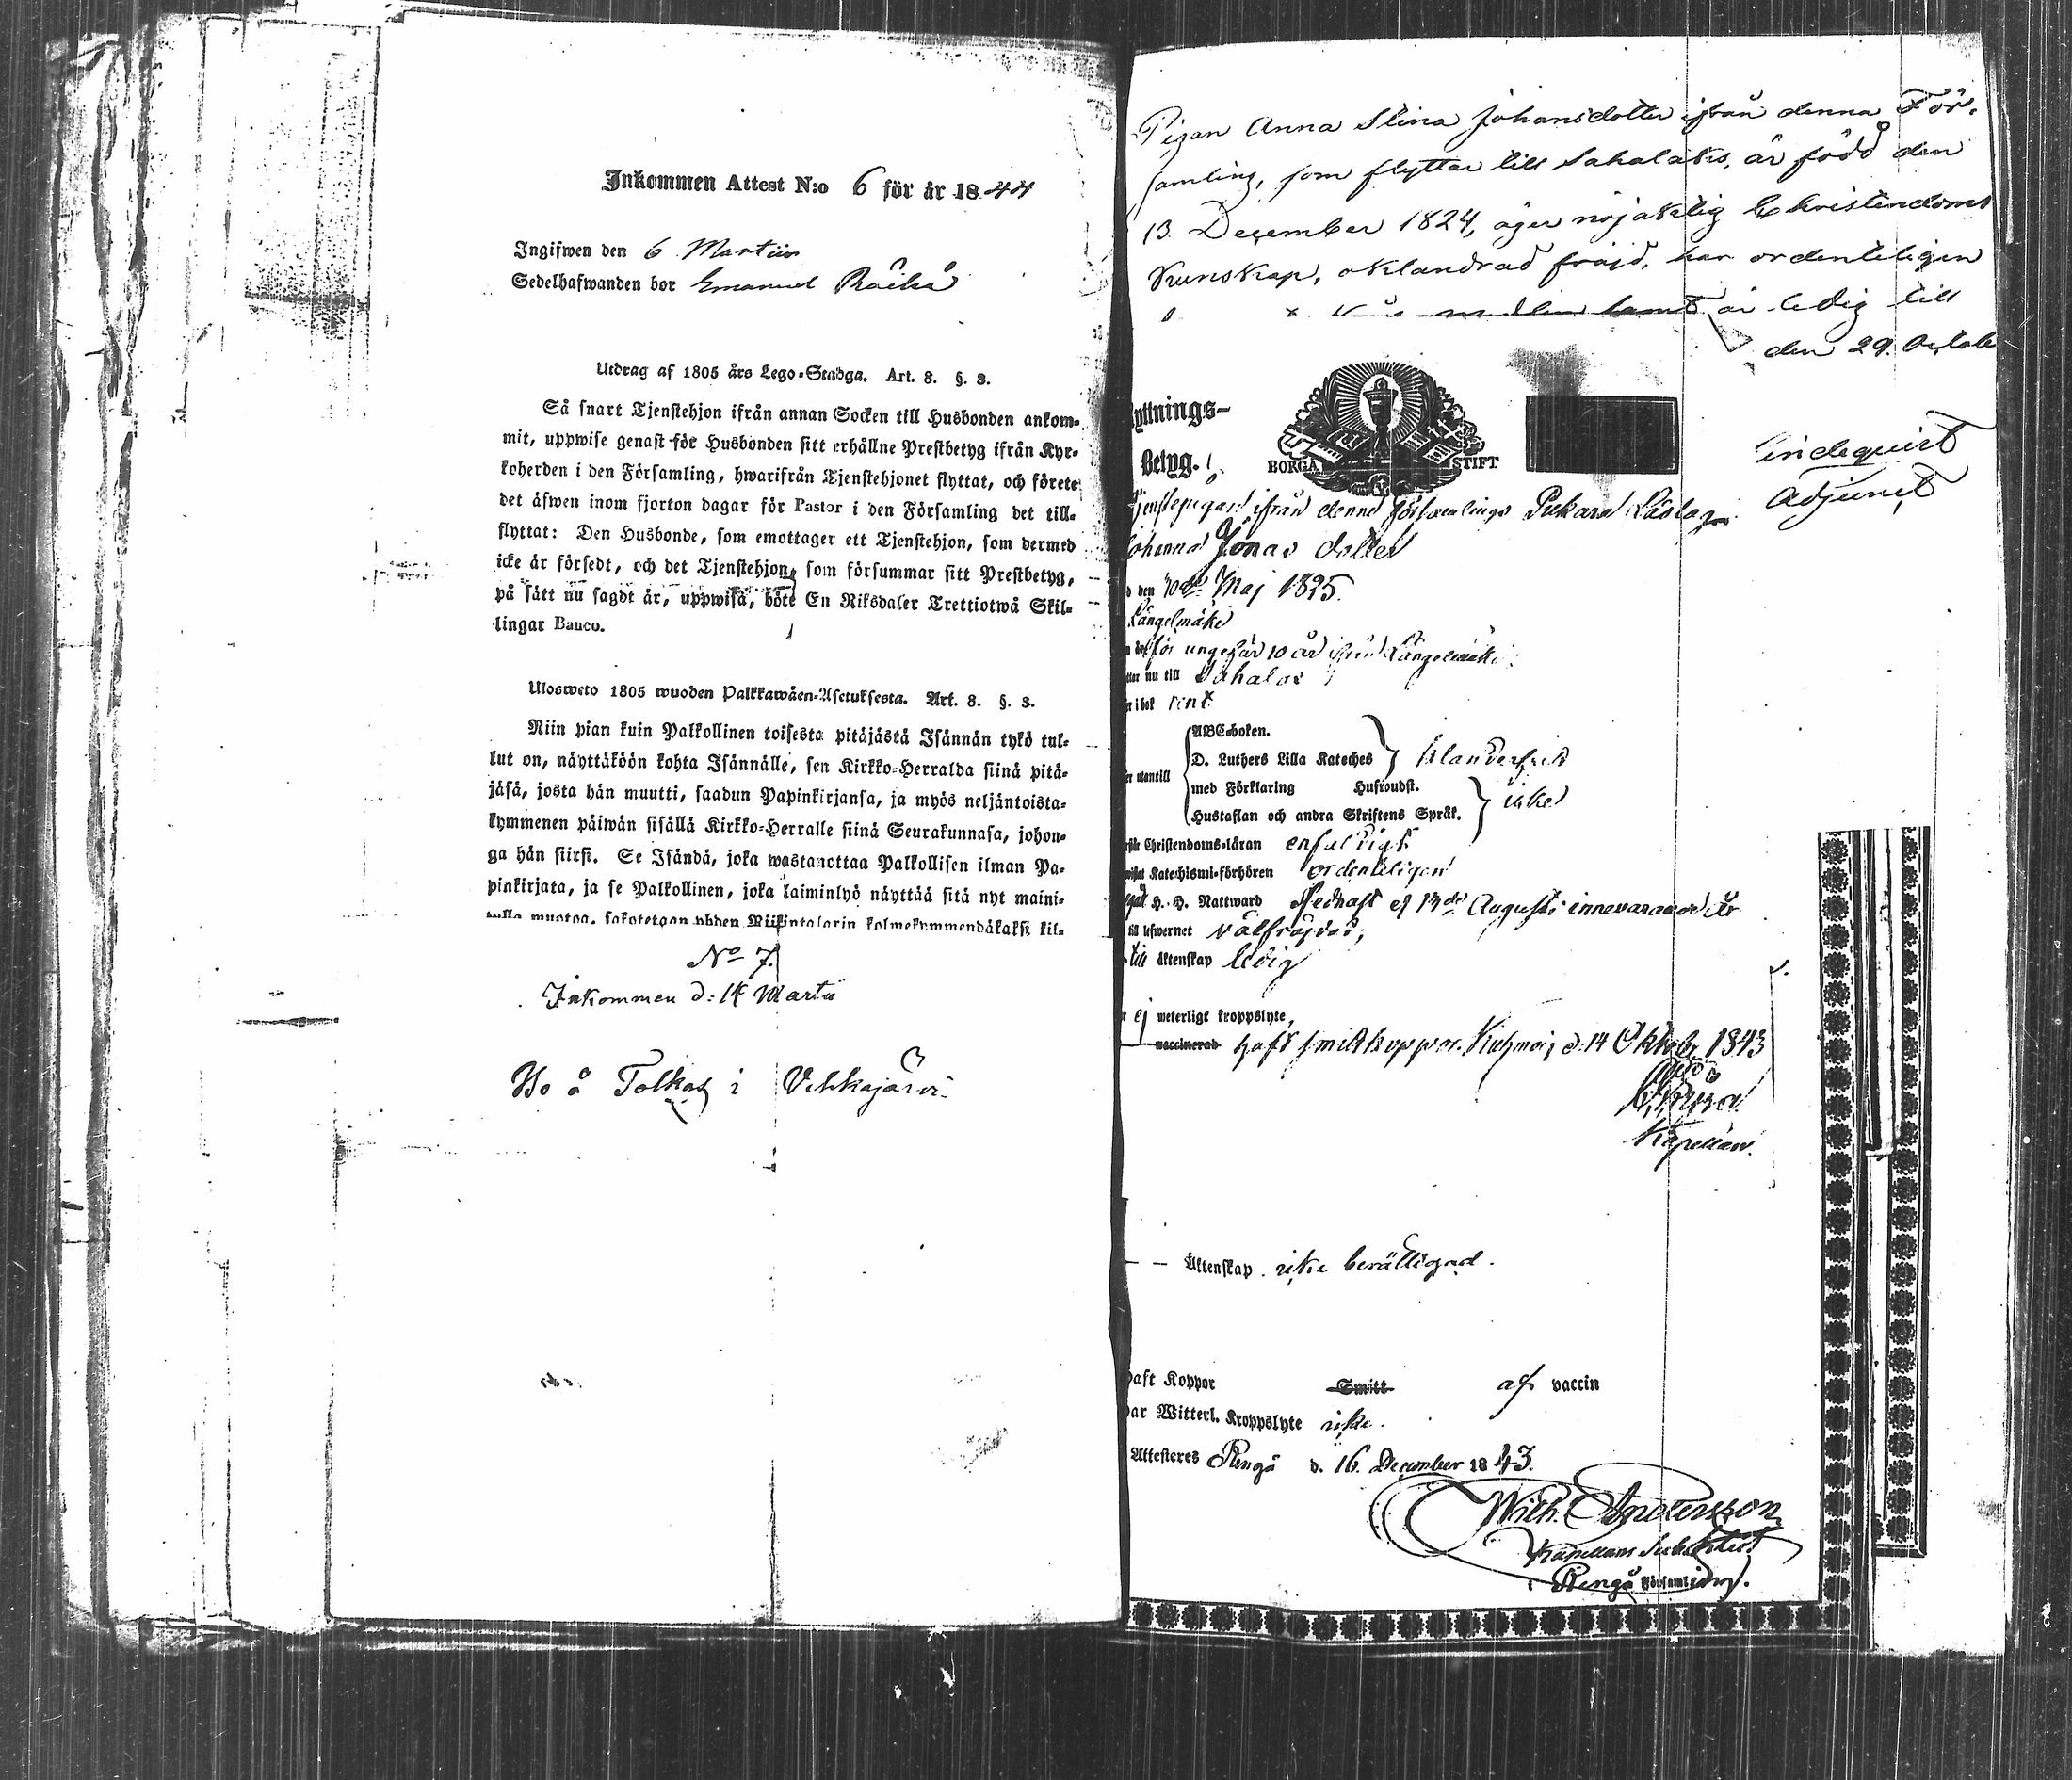 Inkommen Attest N:o 6 för år 1844
Ingifwen den 6 Martius
Sedelhafwanden bor Emanuel
Utdrag af 1805 års Lego-Stadga. Art. 8. §. 3.
Så snart Tjenstehjon ifrån annan Socken till Husbonden ankom-
mit, uppwise genast för Husbonden sitt erhållne Prestbetyg ifrån Kyr-
koherden i den Församling, hwarifrån Tjenstehjonet flyttat, och förete
det äfwen inom fjorton dagar för Pastor i den Församling det till-
flyttat: Den Husbonde, som emottager ett Tjenstehjon, som dermed
icke är försedt, och det Tjenstehjon, som försummar sitt Prestbetyg,
på sätt nu sagdt är, uppwisa, böte En Riksdaler Trettiotwå Skil-
lingar Banco.
Ulosweto 1805 wuoden Palkkawäen-Asetuksesta. Art. 8. §. 3.
Niin pian kuin Palkollinen toisesta pitäjästä Isännän tykö tul-
lut on, näyttäköön kohta Isännälle, sen Kirkko-Herralda siinä pitä-
jäsä, josta hän muutti, saadun Papinkirjansa, ja myös neljäntoista-
kymmenen päiwän sisällä Kirkko-Herralle siinä Seurakunnasa, johon-
ga hän siirsi. Se Isändä, joka wastanottaa Palkollisen ilman Pa-
pinkirjata, ja se Palkollinen, joka laiminlyö näyttää sitä nyt maini-
tulla muotoa, sakotetaan yhden Riikintalarin kolmekymmendäkaksi kil-
No 7.
Inkommen d: 14 Martii
Bo å Tolkas i Vehkajärvi
Pigan Anna Stina Johansdotter ifrån denna För-
samling, som flyttar till Sahalaks, är född den
13 December 1824, äger nöjaktig Christendoms
Kunskap, oklandrad fräjd, har ordenteligen
är ledig till
den 29. Octob
Lindequist
Adjunct
yttnings-
Betyg.
BORGÅ STIFT
Tjenstepigan ifrån denne församlings Pukara Låslag
Johanna Jonas dotter
d den 10de Maj 1825.
Längelmäki
för ungefär 10 år ifrån Längelmäki
ttar nu till Sahalax
r i bok rent
er utantill
ABC-boken.
D. Luthers Lilla Kateches
med Förklaring Husfroudst.
Hustaflan och andra Skriftens Språk.
klanderfritt
icke
rstår Christendoms-läran enfaldigt
wistat Katechismi-förhören ordenteligen
egått H. H. Nattward sednast d 13de Augusti innevarande år
till lefwernet välfräjdad,
till äktenskap ledig
r ej weterligt kroppslyte,
vaccinerad haft smittkoppor. Kuhmois d: 14 Oktober 1843
Kapellan.
Äktenskap icke berättigad.
Haft Koppor Smitt af vaccin
Har Witterl. Kroppslyte icke.
Attesteres Rengå d. 16 December 1843.
Wilh. Andersson
Kapellans Substitut
i Rengå Församling.